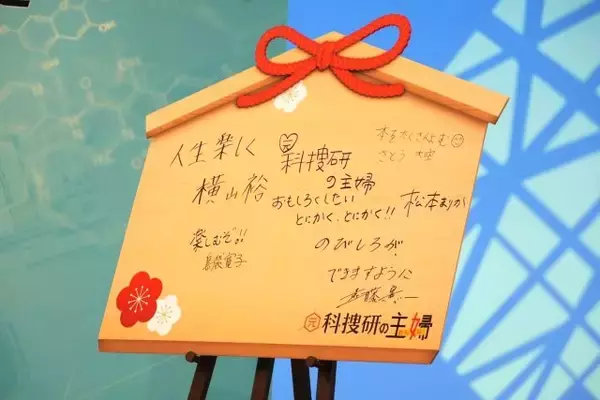 人生楽しく
横山裕
楽しむぞ!!
島袋寛子
元
科捜研
の主婦
おもしろくしたい
とにかく、とにかく!!
松本まりか
本をたくさんよむ
さとう
のびしろが、
できますように
佐藤
元科捜研の主婦